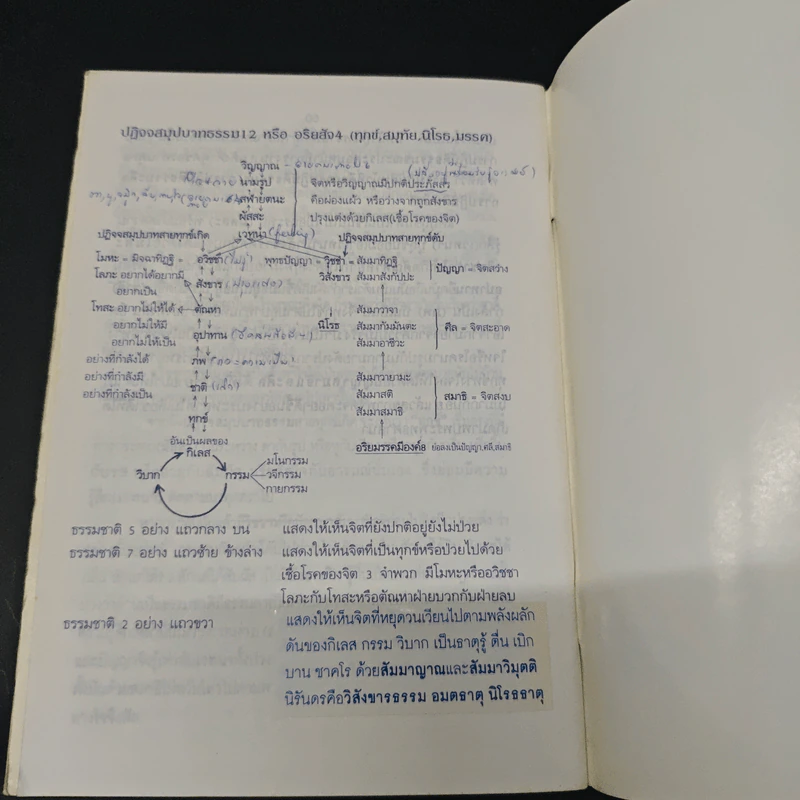 ปฏิจจสมุปบาทธรรม12 หรือ อริยสัจ4 (ทุกข์,สมุทัย,นิโรธ,มรรค)
วิญญาณ
นามรูป จิตหรือวิญญาณมีปกติประภัสสร
สฬายตนะ คือผ่องแผ้ว หรือว่างจากถูกสังขาร
ผัสสะ ปรุงแต่งด้วยกิเลส(เชื้อโรคของจิต)
เวทนา
ปฏิจจสมุปบาทสายทุกข์เกิด ปฏิจจสมุปบาทสายทุกข์ดับ
โมหะ = มิจฉาทิฏฐิ = อวิชชา พุทธปัญญา = วิชชา = สัมมาทิฏฐิ
โลภะ อยากได้อยากมี สังขาร วิสังขาร สัมมาสังกัปปะ ปัญญา = จิตสว่าง
อยากเป็น
โทสะ อยากไม่ให้ได้ ตัณหา สัมมาวาจา
อยากไม่ให้มี นิโรธ สัมมากัมมันตะ ศีล = จิตสะอาด
อยากไม่ให้เป็น อุปาทาน สัมมาอาชีวะ
อย่างที่กำลังได้ ภพ
อย่างที่กำลังมี ชาติ สัมมาวายามะ
อย่างที่กำลังเป็น สัมมาสติ สมาธิ = จิตสงบ
ทุกข์ สัมมาสมาธิ
อันเป็นผลของ
กิเลส อริยมรรคมีองค์8 ย่อลงเป็นปัญญา,ศีล,สมาธิ
วิบาก กรรม
มโนกรรม
วจีกรรม
กายกรรม
ธรรมชาติ 5 อย่าง แถวกลาง บน แสดงให้เห็นจิตที่ยังปกติอยู่ยังไม่ป่วย
ธรรมชาติ 7 อย่าง แถวซ้าย ข้างล่าง แสดงให้เห็นจิตที่เป็นทุกข์หรือป่วยไปด้วย
เชื้อโรคของจิต 3 จำพวก มีโมหะหรืออวิชชา
โลภะกับโทสะหรือตัณหาฝ่ายบวกกับฝ่ายลบ
ธรรมชาติ 2 อย่าง แถวขวา แสดงให้เห็นจิตที่หยุดวนเวียนไปตามพลังผลัก
ดันของกิเลส กรรม วิบาก เป็นธาตุรู้ ตื่น เบิก
บาน ชาคโร ด้วยสัมมาญาณและสัมมาวิมุตติ
นิรันดรคือวิสังขารธรรม อมตธาตุ นิโรธธาตุ